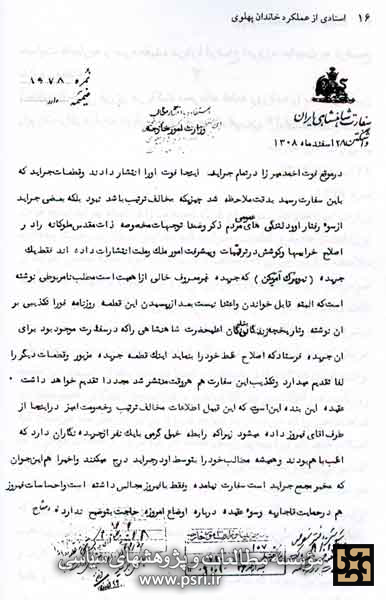 ۱۶ اسنادی از عملکرد خاندان پهلوی
نمره ۱۹۷۸
ضمیمه دارد
سفارت شاهنشاهی ایران
واشنگتن
۲۸ اسفند ماه ۱۳۰۸
وزارت امور خارجه
در موقع فوت احمد میرزا در تمام جراید اینجا فوت او را انتشار دادند و قطعات جراید که
باین سفارت رسید بدقت ملاحظه شد چیزیکه مخالف ترتیب باشد نبود بلکه بعضی جراید
از سوء رفتار او و دلتنگی های عمومی مردم ذکر و ضمنا توجهات مخصوصه ذات مقدس ملوکانه را در
اصلاح خرابیها و کوشش در ترقیات و پیشرفت امور ملک و ملت انتشارات داده اند فقط یک
جریده (نیویرک آمریکن) که جریده غیر معروف خالی از اهمیت است مطلب نامربوطی نوشته
است که البته قابل خواندن و اعتنا نیست بعد از رسیدن این قطعه روزنامه فورا تکذیبی بر
آن نوشته و تاریخچه زندگانی اعلیحضرت شاهنشاهی را که در سفارت موجود بود برای
آن جریده فرستاد که اصلاح غلط خود را بنماید اینک قطعه جریده مزبور و قطعات دیگر را
لفا تقدیم میدارد و تکذیب این سفارت هم هر وقت منتشر شد مجددا تقدیم خواهد داشت
عقیده این بنده این است که این قبیل اطلاعات مخالف ترتیب و خصومت آمیز در اینجا از
طرف آقای فیروز داده میشود زیرا که رابطه خیلی گرمی با یک نفر از جریده نگاران دارد که
اغلب با هم بودند و همیشه مطالب خود را بتوسط او در جراید درج میکنند و اخیرا هم این جوان
که مخبر مجمع جراید است سفارت نیامده و فقط با فیروز مجالس داشته است و احساسات فیروز
هم در حمایت قاجاریه و سوء عقیده درباره اوضاع امروزه حاجت بتوضیح ندارد
موسسه مطالعات و پژوهشهای سیاسی
www.psri.ir